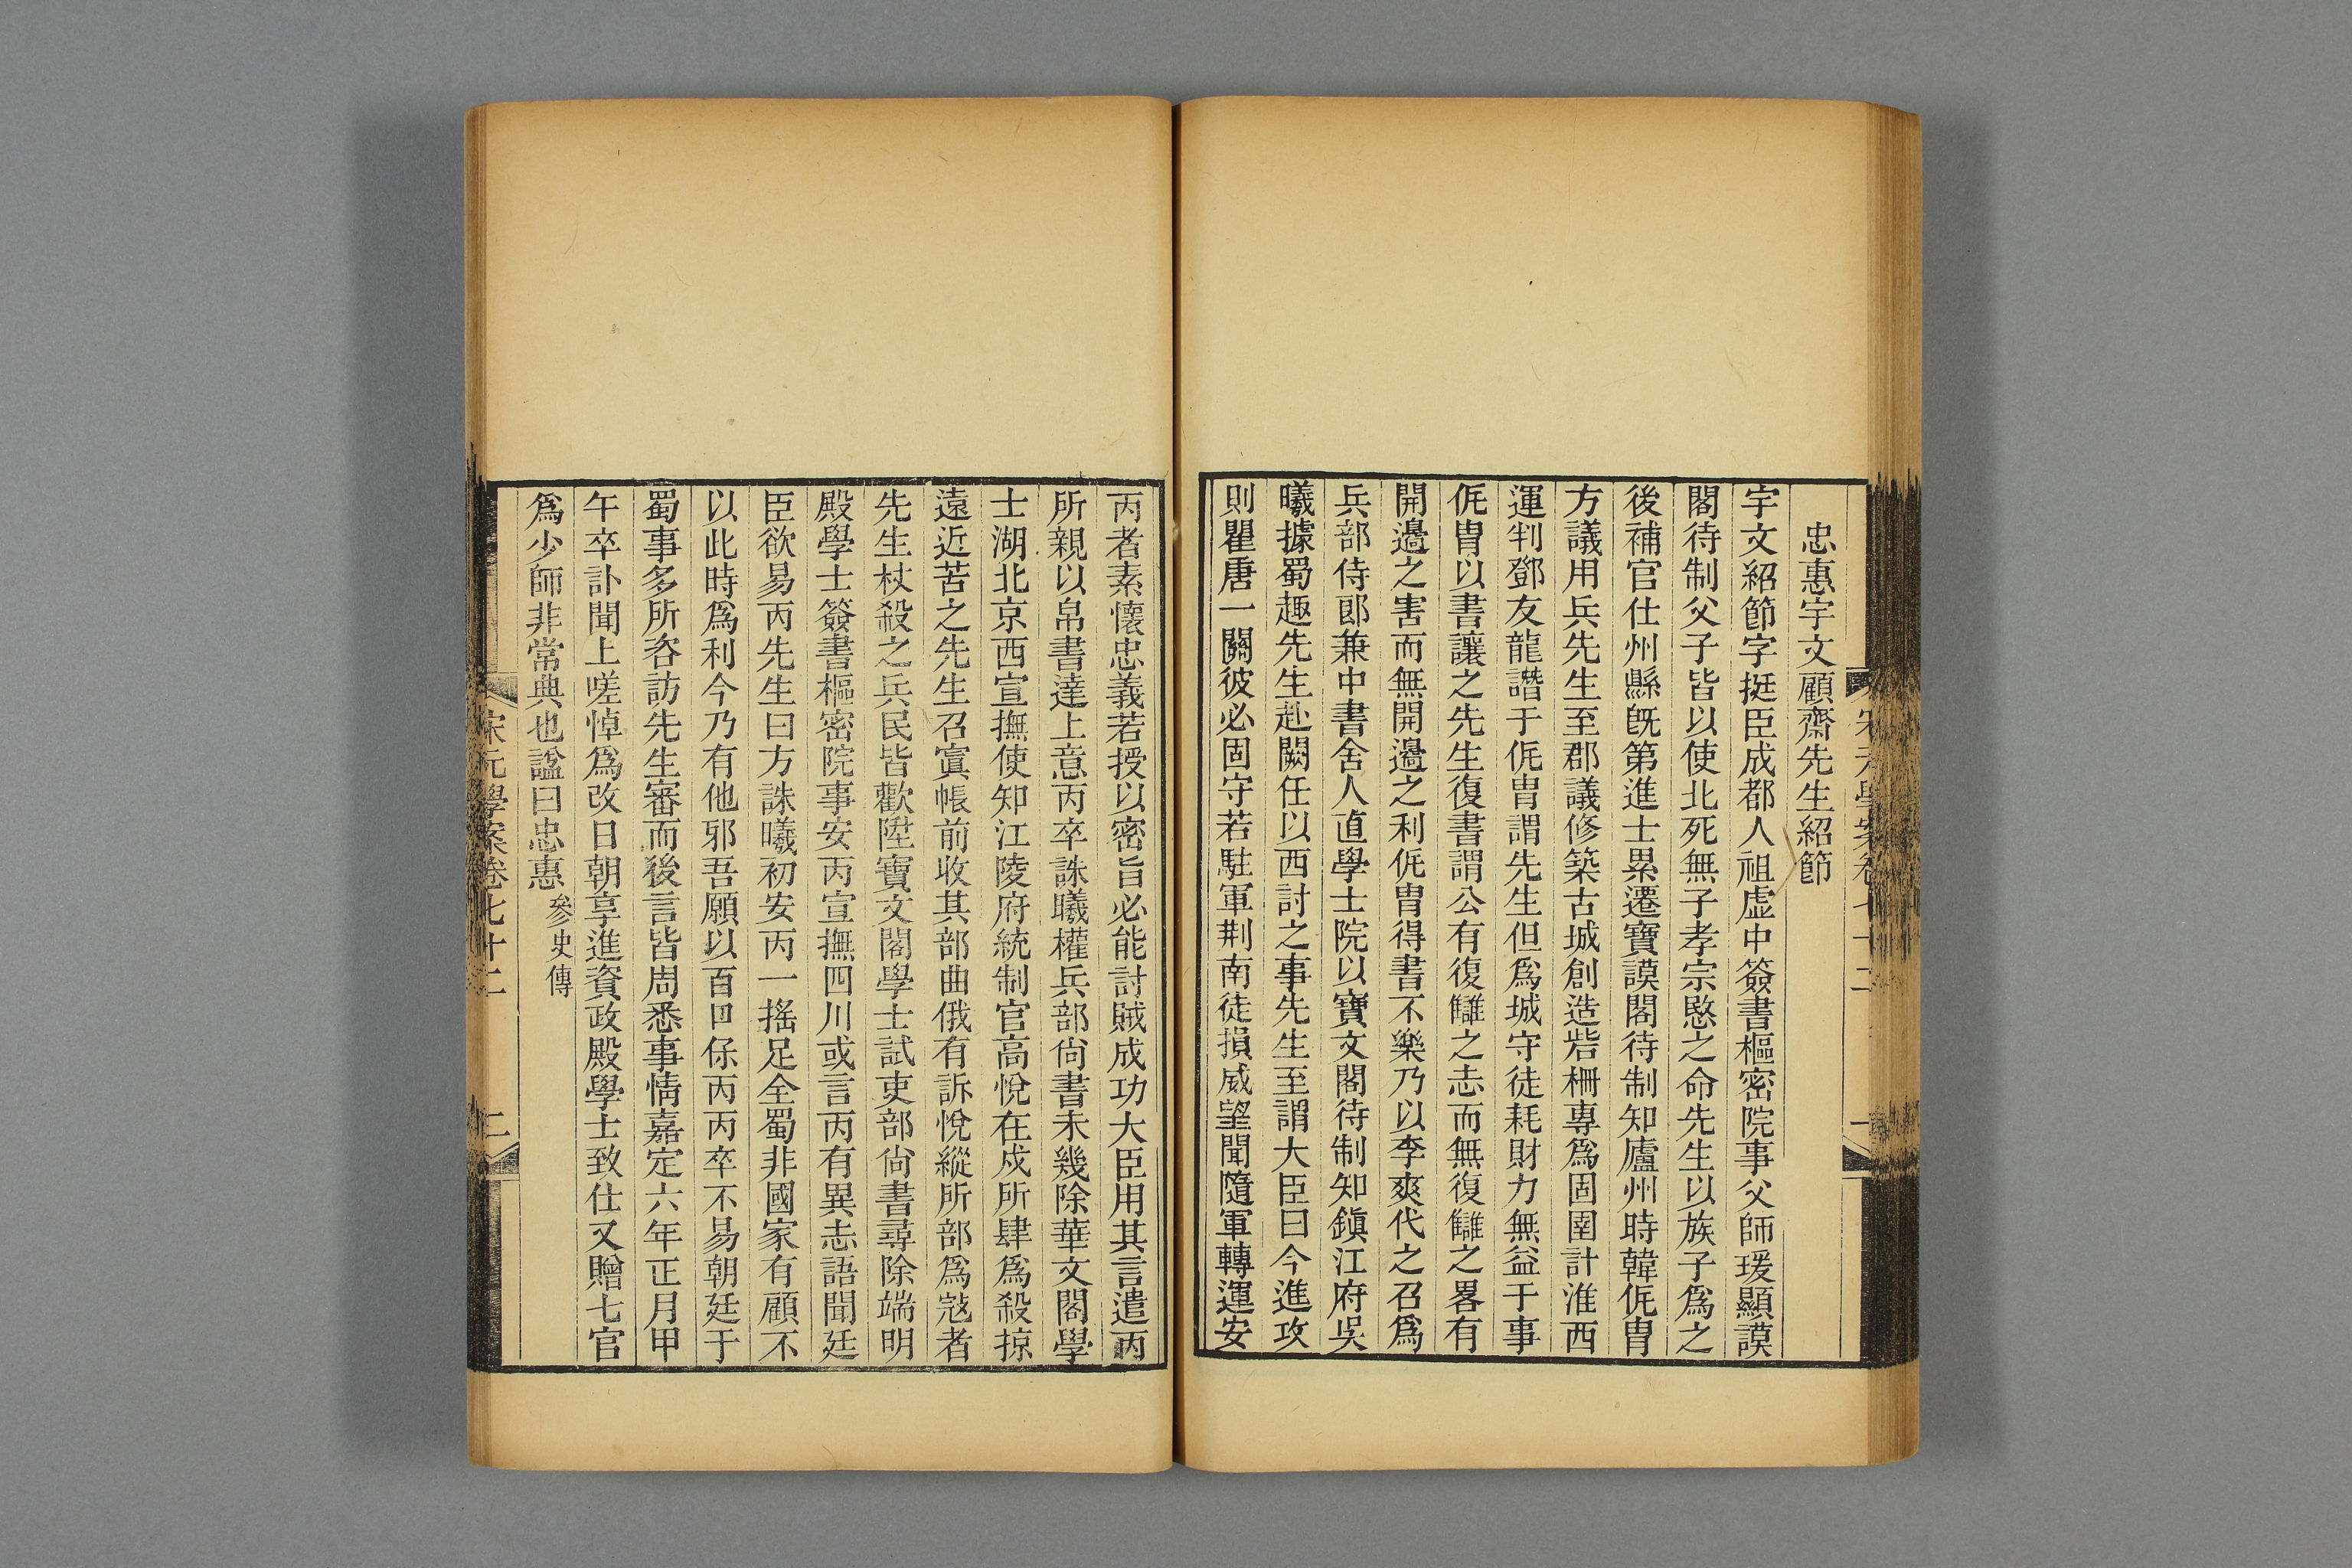 忠惠宇文顧齋先生紹節
宇文紹節字挺臣成都人祖虛中簽書樞密院事父師瑗顯謨
閣待制父子皆以使北死無子孝宗愍之命先生以族子爲之
後補官仕州縣旣第進士累遷寶謨閣待制知廬州時韓侂冑
方議用兵先生至郡議修築古城創造砦柵專爲固圉計淮西
運判鄧友龍譖于侂冑謂先生但爲城守徒耗財力無益于事
侂冑以書讓之先生復書謂公有復讎之志而無復讎之畧有
開邊之害而無開邊之利侂冑得書不樂乃以李爽代之召爲
兵部侍郎兼中書舍人直學士院以寶文閣待制知鎭江府吳
曦據蜀趣先生赴闕任以西討之事先生至謂大臣曰今進攻
則瞿唐一關彼必固守若駐軍荆南徒損威望聞隨軍轉運安
丙者素懷忠義若授以密旨必能討賊成功大臣用其言遣丙
所親以帛書達上意丙卒誅曦權兵部尙書未幾除華文閣學
士湖北京西宣撫使知江陵府統制官高悅在戍所肆爲殺掠
遠近苦之先生召寘帳前收其部曲俄有訴悅縱所部爲寇者
先生杖殺之兵民皆歡陞寶文閣學士試吏部尙書尋除端明
殿學士簽書樞密院事安丙宣撫四川或言丙有異志語聞廷
臣欲易丙先生曰方誅曦初安丙一搖足全蜀非國家有顧不
以此時爲利今乃有他邪吾願以百口保丙丙卒不易朝廷于
蜀事多所咨訪先生審而後言皆周悉事情嘉定六年正月甲
午卒訃聞上嗟悼爲改日朝享進資政殿學士致仕又贈七官
爲少師非常典也諡曰忠惠參史傳
宋元學案卷七十二
二